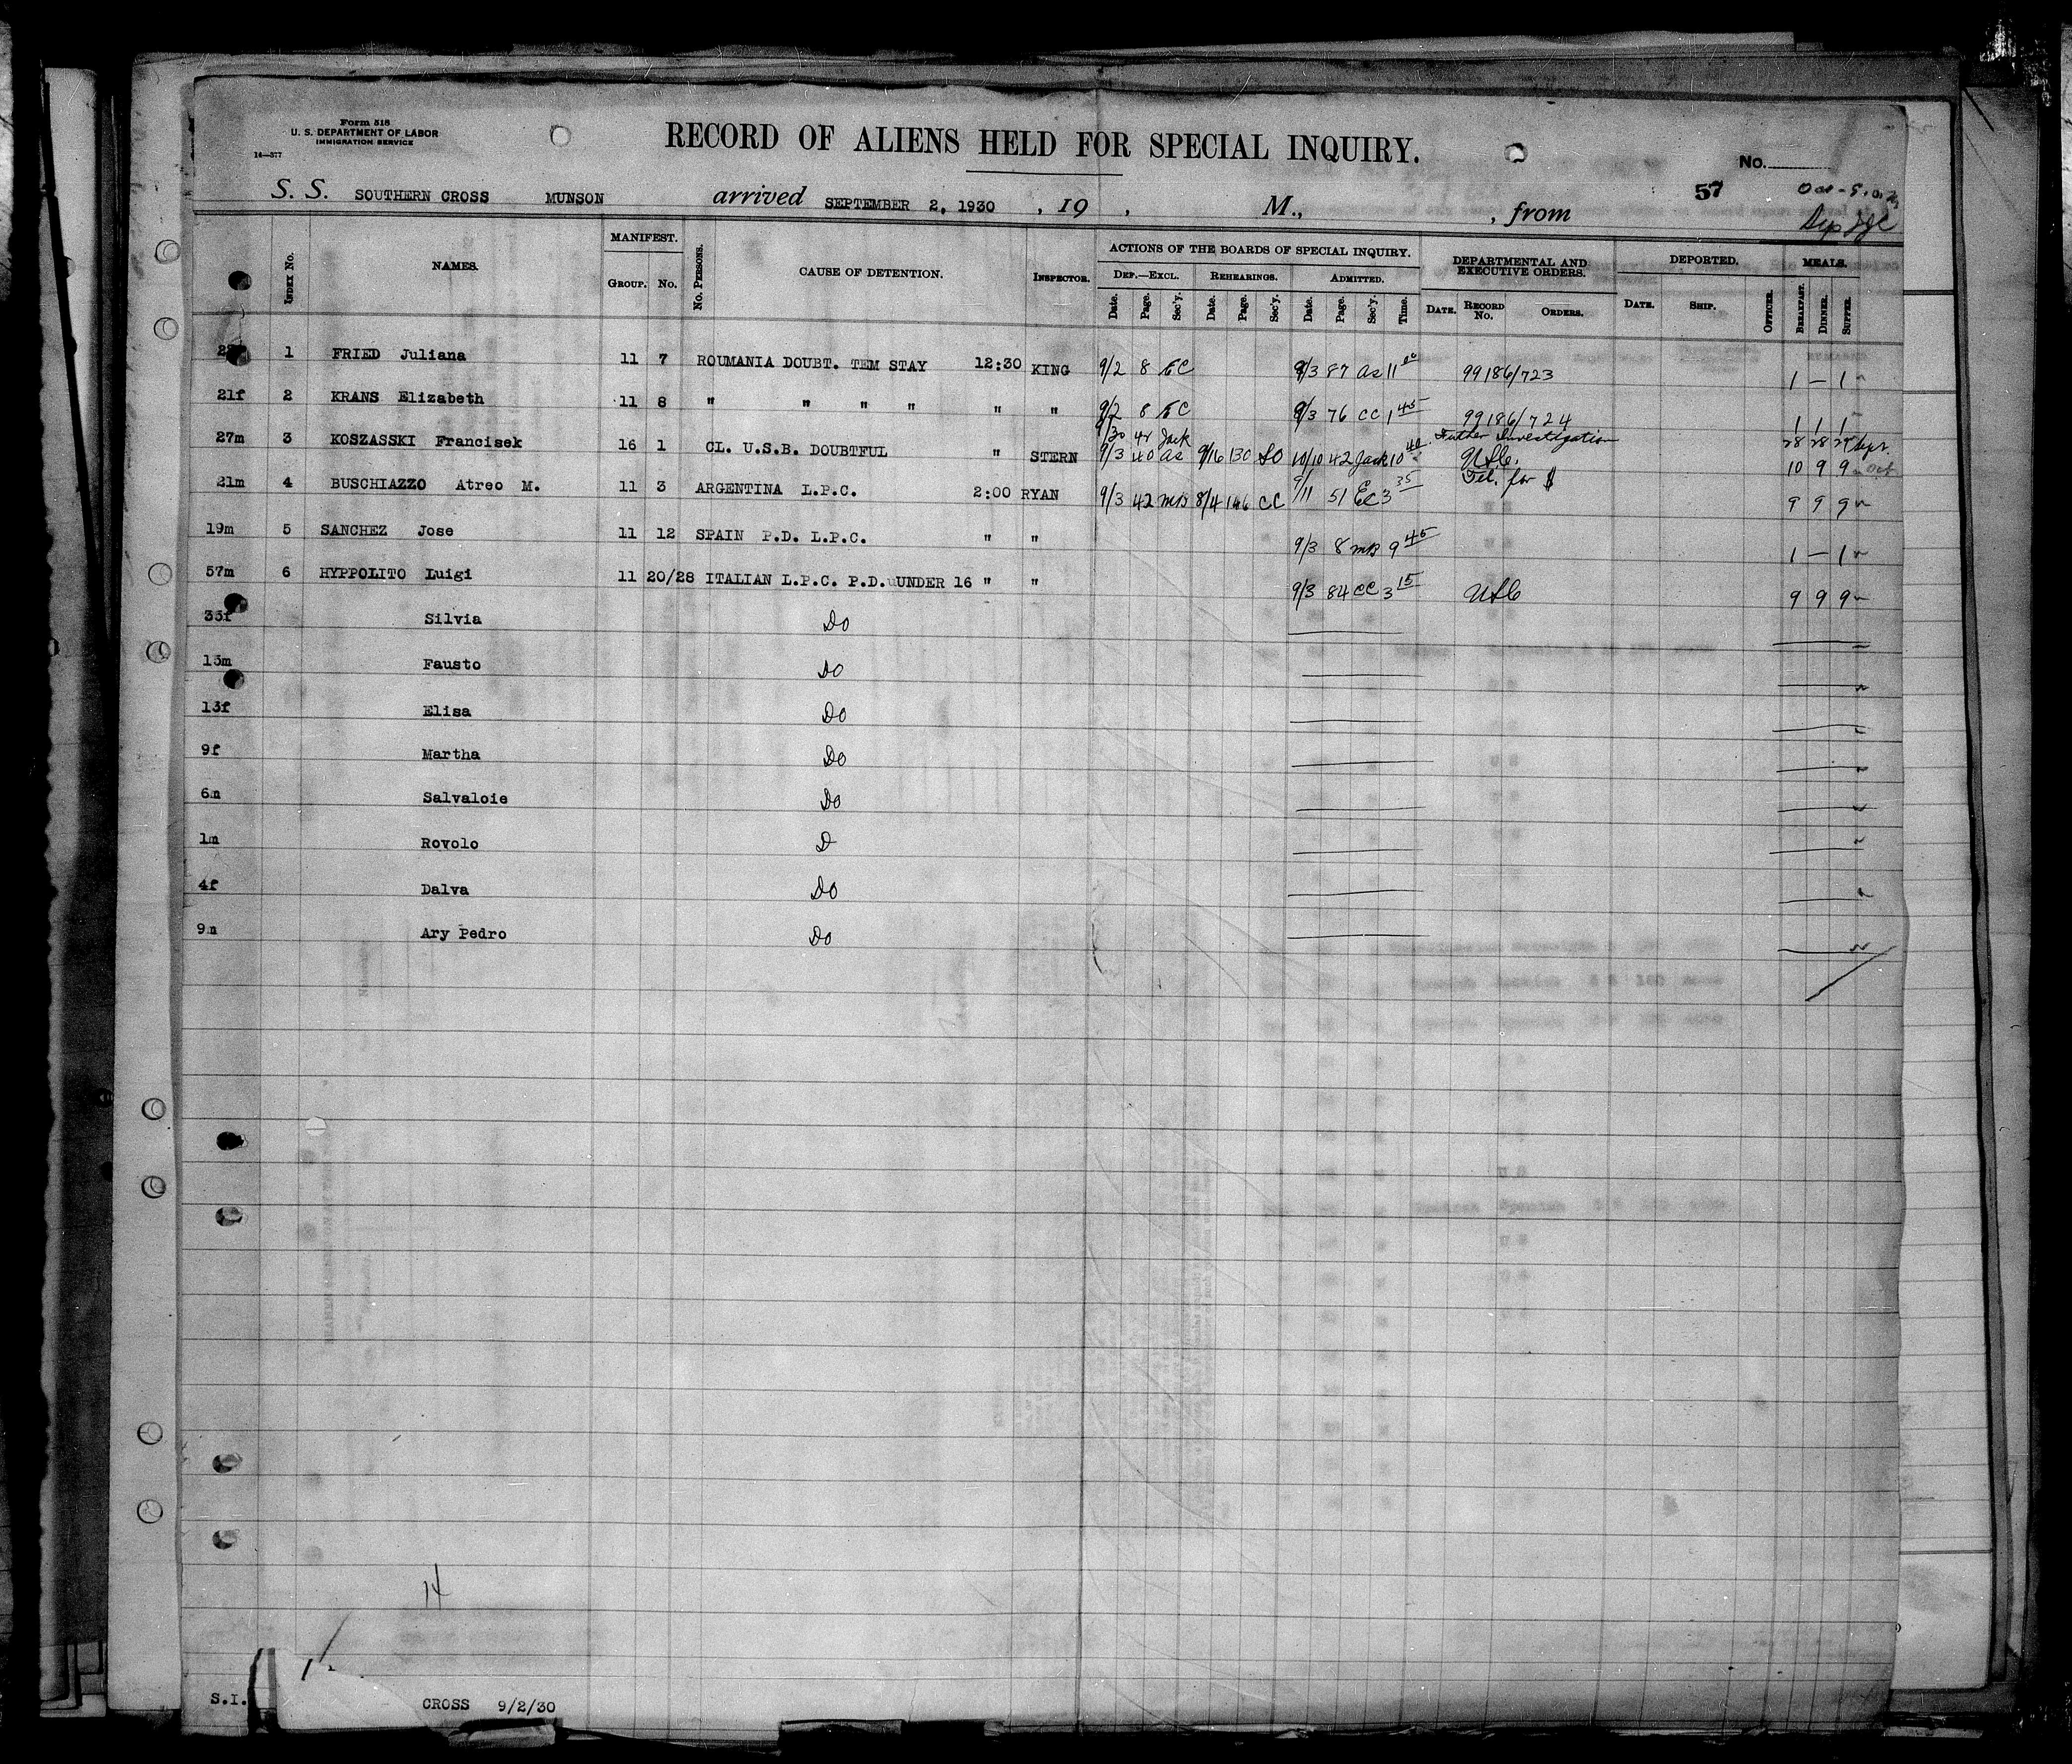 Form 518
U. S. DEPARTMENT OF LABOR
IMMIGRATION SERVICE
14—377
RECORD OF ALIENS HELD FOR SPECIAL INQUIRY.
No.
57
S. S. SOUTHERN CROSS MUNSON arrived SEPTEMBER 2, 1930 , 19 , M., , from
Index No. NAMES. MANIFEST. Group. No. No. Persons. CAUSE OF DETENTION. Inspector. ACTIONS OF THE BOARDS OF SPECIAL INQUIRY. Def.—Excl. Date. Page. Sec'y. Rehearings. Date. Page. Sec'y. Admitted. Date. Page. Sec'y. Time. DEPARTMENTAL AND EXECUTIVE ORDERS. Date. Record No. Orders. DEPORTED. Date. Ship. Officer. MEALS. Breakfast. Dinner. Supper.
1 FRIED Juliana 11 7 ROUMANIA DOUBT. TEM STAY 12:30 KING 9/2 8 EC 9/3 87 as 11 00 99186/723 1 — 1
21f 2 KRANS Elizabeth 11 8 " " " " " " 9/2 8 EC 9/3 76 CC 1 45 99186/724 1 1 1
9/30 42 Jack Futher Investigation 28 28 29 Sept.
27m 3 KOSZASSKI Francisek 16 1 CL. U.S.B. DOUBTFUL " STERN 9/3 40 as 9/16 130 SO 10/10 42 Jack 10 40 10 9 9 Oct
21m 4 BUSCHIAZZO Atreo M. 11 3 ARGENTINA L.P.C. 2:00 RYAN 9/3 42 MB 8/4 146 CC 9/11 51 EC 3 35 Tel. for $ 9 9 9
19m 5 SANCHEZ Jose 11 12 SPAIN P.D. L.P.C. " " 9/3 8 MB 9 45 1 — 1
57m 6 HYPPOLITO Luigi 11 20/28 ITALIAN L.P.C. P.D. UNDER 16 " " 9/3 84 CC 3 15 9 9 9
35f Silvia Do
15m Fausto Do
13f Elisa Do
9f Martha Do
6m Salvaloie Do
1m Rovolo D
4f Dalva Do
9m Ary Pedro Do
14
S.I. CROSS 9/2/30